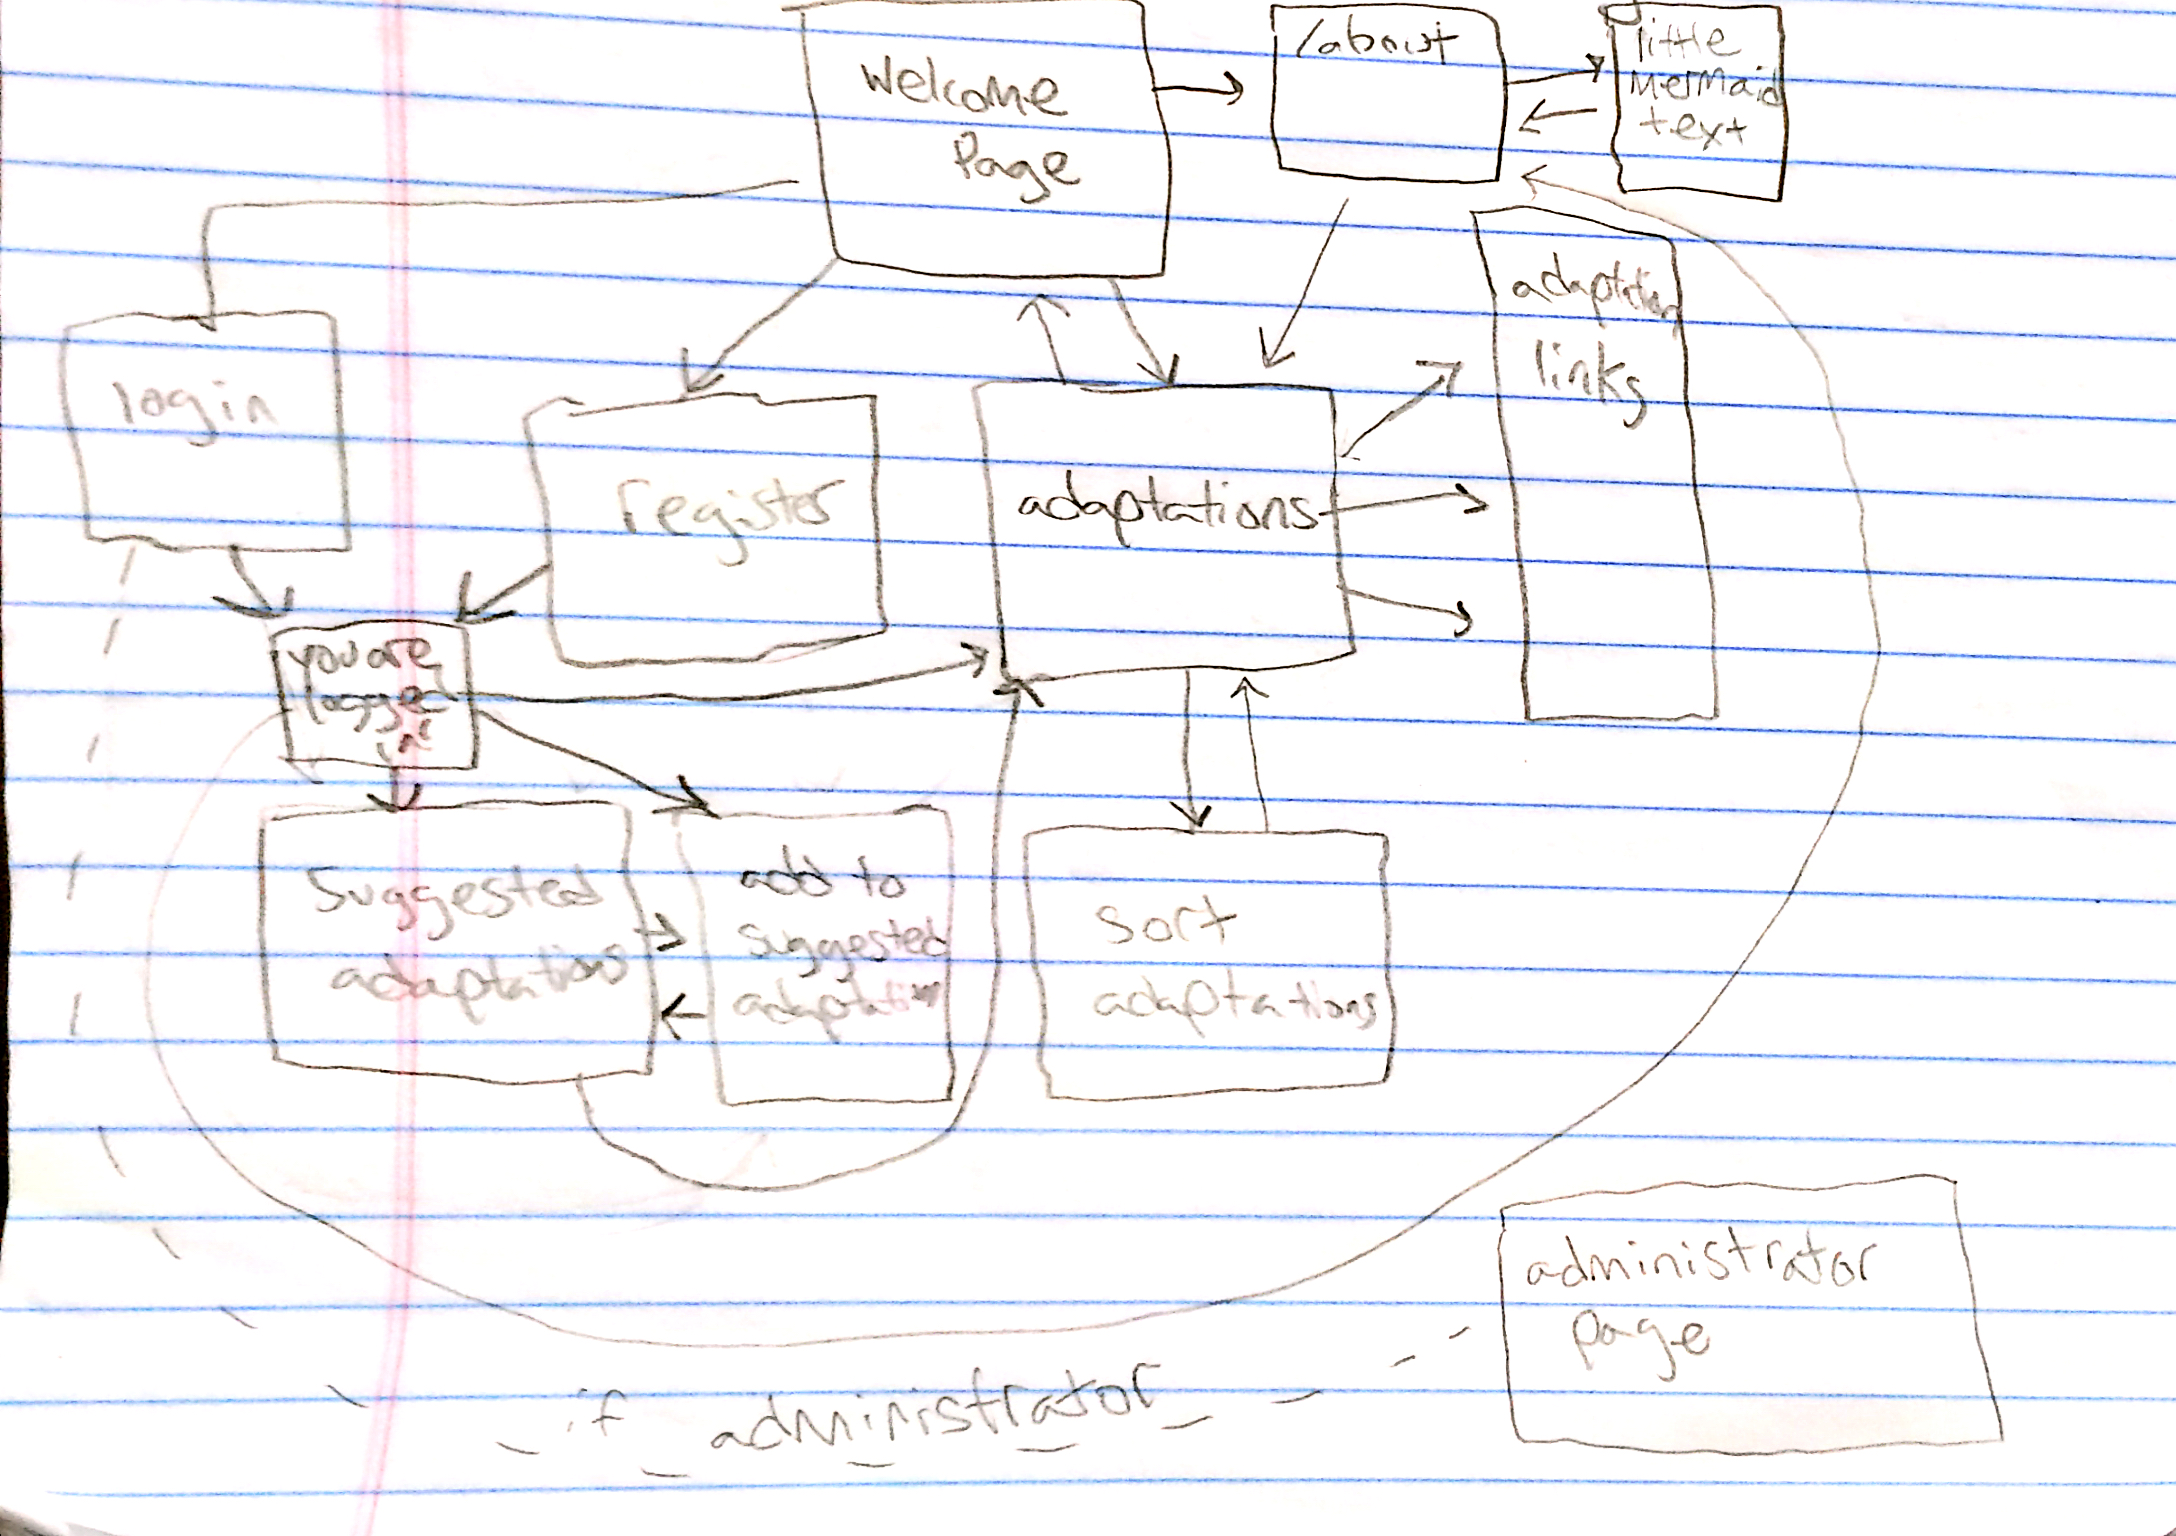 Welcome
Page
/about
little
mermaid
text
login
register
adaptations
adaptation
links
you are
logged
in
Suggested
adaptations
add to
suggested
adaptation
sort
adaptations
administrator
page
if administrator